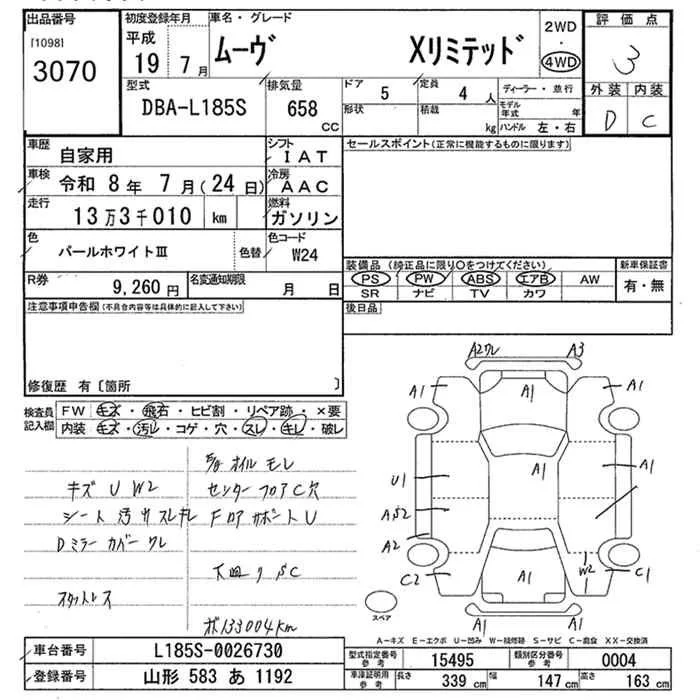 出品番号 初度登録年月 車名・グレード 2WD 評価点
[1098] 平成 ムーヴ Xリミテッド ・ 3
3070 19 7月 4WD 外装 内装
型式 排気量 ドア 5 定員 4人 ディーラー・並行 D C
DBA-L185S 658 cc 形状 積載 kg モデル年式 年
ハンドル 左・右
車歴 自家用 シフト IAT セールスポイント(正常に機能するものに限ります)
車検 令和 8年 7月(24日) 冷房 AAC
走行 13万3千010 km 燃料 ガソリン
色 パールホワイトⅢ 色替 色コード W24
装備品 (純正品に限り○をつけてください) 新車保証書
R券 9,260円 名変通知期限 月 日 PS PW ABS エアB AW 有・無
SR ナビ TV カワ
注意事項申告欄(不具合内容等は具体的に記入して下さい) 後日品
修復歴 有〔箇所 〕
検査員記入欄 FW キズ・飛石・ヒビ割・リペア跡・×要
内装 キズ・汚レ・コゲ・穴・スレ・キレ・破レ
A2ワレ A3
A1 A1 A1
A1 A1
U1
A2
C2 A1 W2 C1
A1 A1
スペア
オイル モレ
キズ U W2 センターフロアC穴
シート 汚サスレキレ Fロアサポート U
Dミラー カバー ワレ
下廻り SC
スタットレス
133004km
A-キズ E-エクボ U-凹み W-補修跡 S-サビ C-腐食 XX-交換済
車台番号 L185S-0026730 型式指定番号 参考 15495 類別区分番号 参考 0004
登録番号 山形 583 あ 1192 車庫証明用 参考 長さ 339 cm 幅 147 cm 高さ 163 cm